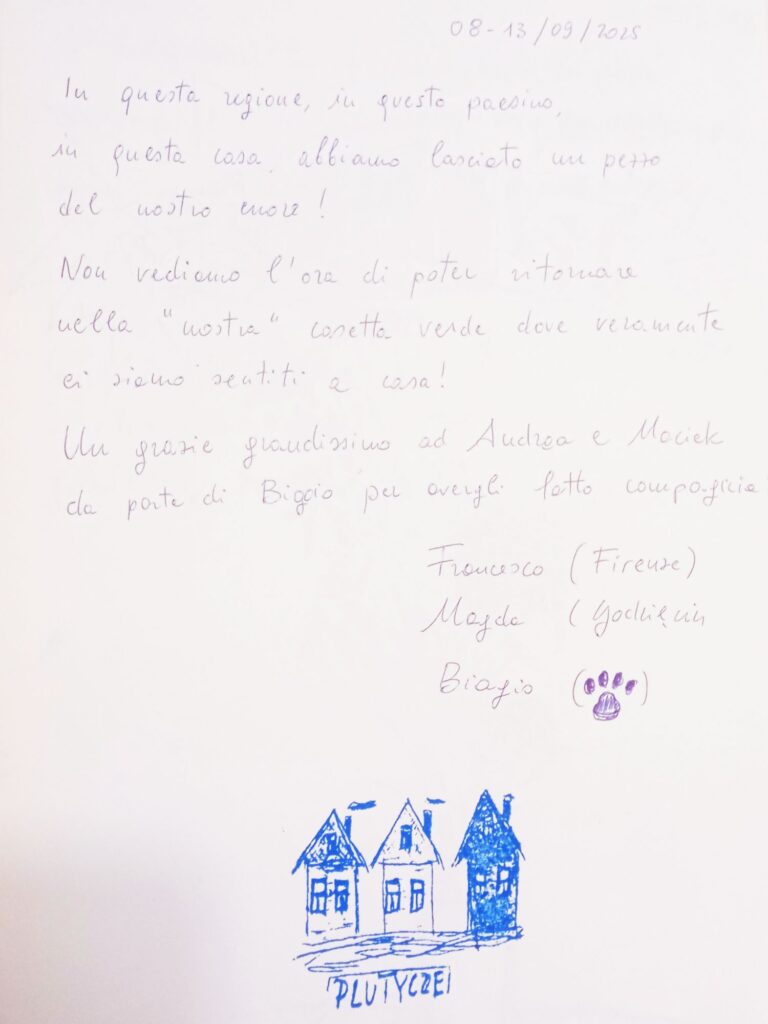 08-13/09/2025
In questa regione, in questo paesino,
in questa casa, abbiamo lasciato un pezzo
del nostro cuore!
Non vediamo l'ora di poter ritornare
nella "nostra" casetta verde dove veramente
ci siamo sentiti a casa!
Un grazie grandissimo ad Andrea e Maciek
da parte di Biagio per avergli fatto compagnia
Francesco (Firenze)
Magda (
Biagio ( )
PLUTYCZE